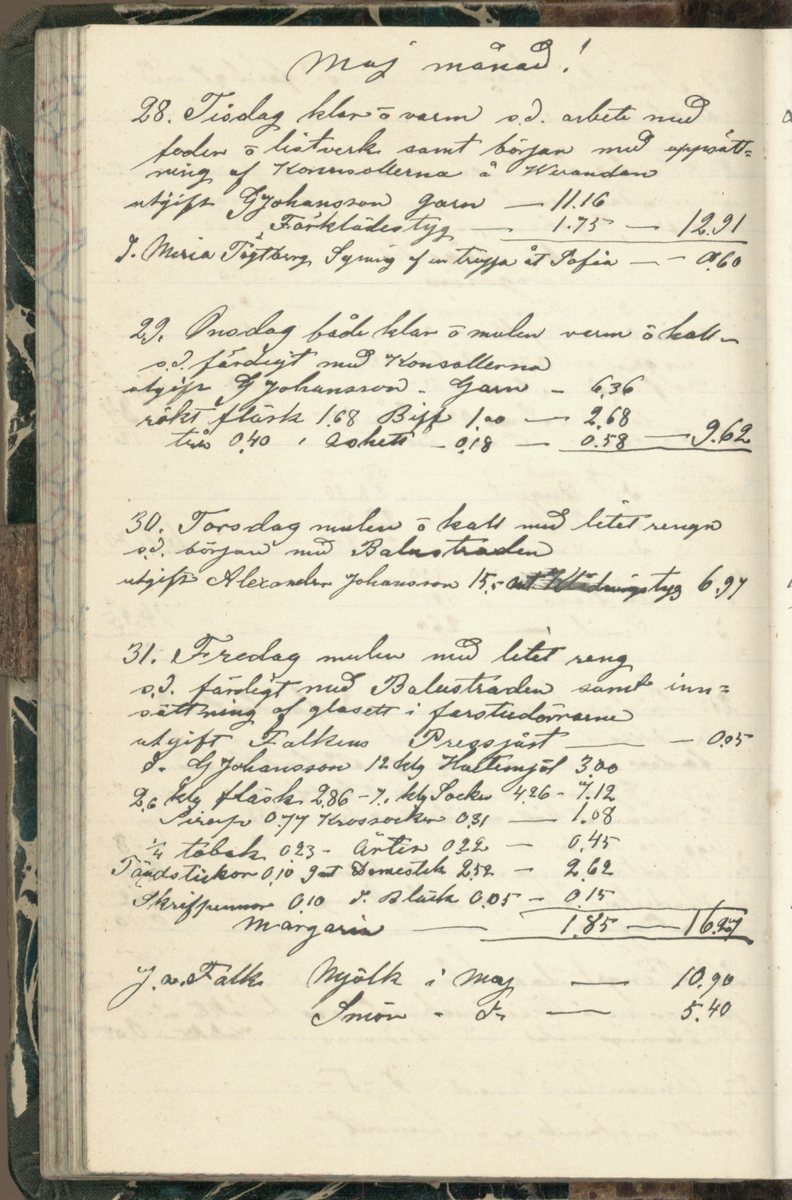 Maj månad!
28. Tisdag klar ō varm s.d. arbete med
foder ō listverk samt början med uppsätt=
ning af Konsollerna å Werandan
utgift G Johansson garn — 11.16
Förklädestyg — 1.75 — 12.91
d. Maria Tigtberg Syning af en tröjja åt Sofia — — 0.60
29. Onsdag både klar ō mulen varm ō kall
s.d. färdigt med Konsollerna
utgift G Johansson - Garn - 6.36
rökt fläsk 1.68 Biff 1.00 — 2.68
0.40 0.18 — 0.58 — 9.62
30. Torsdag mulen ō kall med litet rengn
s.d. början med Balustraden
utgift Alexander Johansson 15,- 6.97
31. Fredag mulen med litet reng
s.d. färdigt med Balustraden samt inn=
sättning af glasett i farstudörrarne
utgift Falkens Pressjäst — — 0.05
d. G Johansson 12 klg Hvetemjöl 3.00
2.6 klg fläsk 2.86 - 7, klg Socker 4.26 - 7.12
Sirap 0.77 Krossocker 0.31 — 1.08
¼ tobak 0.23 - Ärter 0.22 — 0.45
Tändstickor 0.10 Domestik 2.52 — 2.62
Skrifpennor 0.10 d. Bläck 0.05 — 0.15
Margarin — 1.85 — 16.27
J. a. Falk Mjölk i maj — 10.90
Smör - d. — 5.40